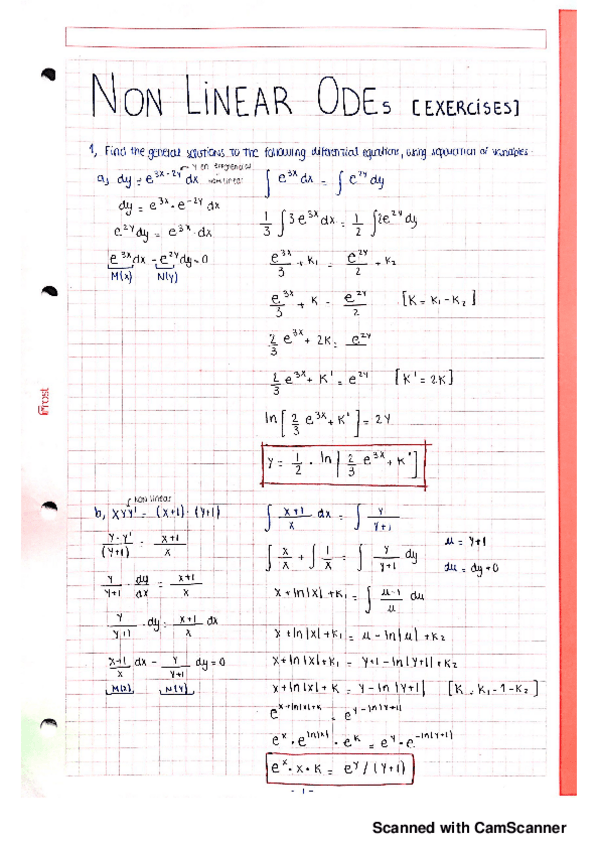 NON LINEAR ODEs [EXERCISES]
1, Find the general solutions to the following differential equations, using separation of variables
a, dy = e^(3x-2y) dx
y en exponencial
non linear
dy = e^3x · e^-2y dx
e^2y dy = e^3x · dx
e^3x dx - e^2y dy = 0
M(x) N(y)
∫ e^3x dx = ∫ e^2y dy
1/3 ∫ 3e^3x dx = 1/2 ∫ 2e^2y dy
e^3x/3 + K1 = e^2y/2 + K2
e^3x/3 + K = e^2y/2 [K = K1 - K2]
2/3 e^3x + 2K = e^2y
2/3 e^3x + K' = e^2y [K' = 2K]
ln[2/3 e^3x + K'] = 2y
y = 1/2 · ln[2/3 e^3x + K']
b, xyy' = (x+1) · (y+1)
non linear
y·y'/(y+1) = x+1/x
y/y+1 · dy/dx = x+1/x
y/y+1 · dy = x+1/x dx
x+1/x dx - y/y+1 dy = 0
M(x) N(y)
∫ x+1/x dx = ∫ y/y+1
∫ x/x + ∫ 1/x = ∫ y/y+1 dy
u = y+1
du = dy+0
x + ln|x| + K1 = ∫ u-1/u du
x + ln|x| + K1 = u - ln|u| + K2
x + ln|x| + K1 = y+1 - ln|y+1| + K2
x + ln|x| + K = y - ln|y+1| [K = K1 - 1 - K2]
e^(x+ln|x|+K) = e^(y-ln|y+1|)
e^x · e^ln|x| · e^K = e^y · e^-ln(y+1)
e^x · x · K = e^y/(y+1)
- 1 -
Scanned with CamScanner